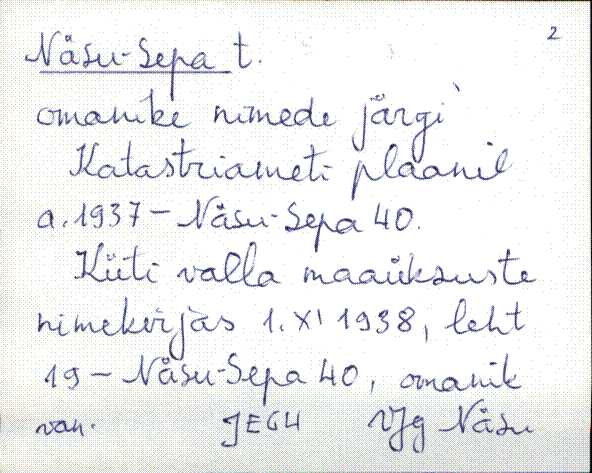 2
Näsu-Sepa t.
omanike nimede järgi
Katastriameti plaanil
a. 1937 – Näsu-Sepa 40.
Küti valla maaüksuste
nimekirjas 1. XI 1938, leht
19 – Näsu-Sepa 40, omanik
van. Näsu